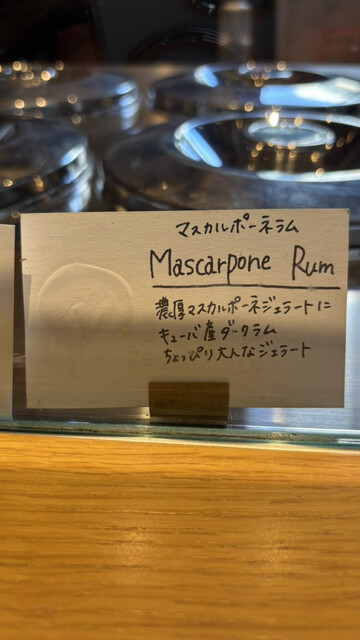 マスカルポーネラム
Mascarpone Rum
濃厚マスカルポーネジェラートに
キューバ産ダークラム
ちょっぴり大人なジェラート